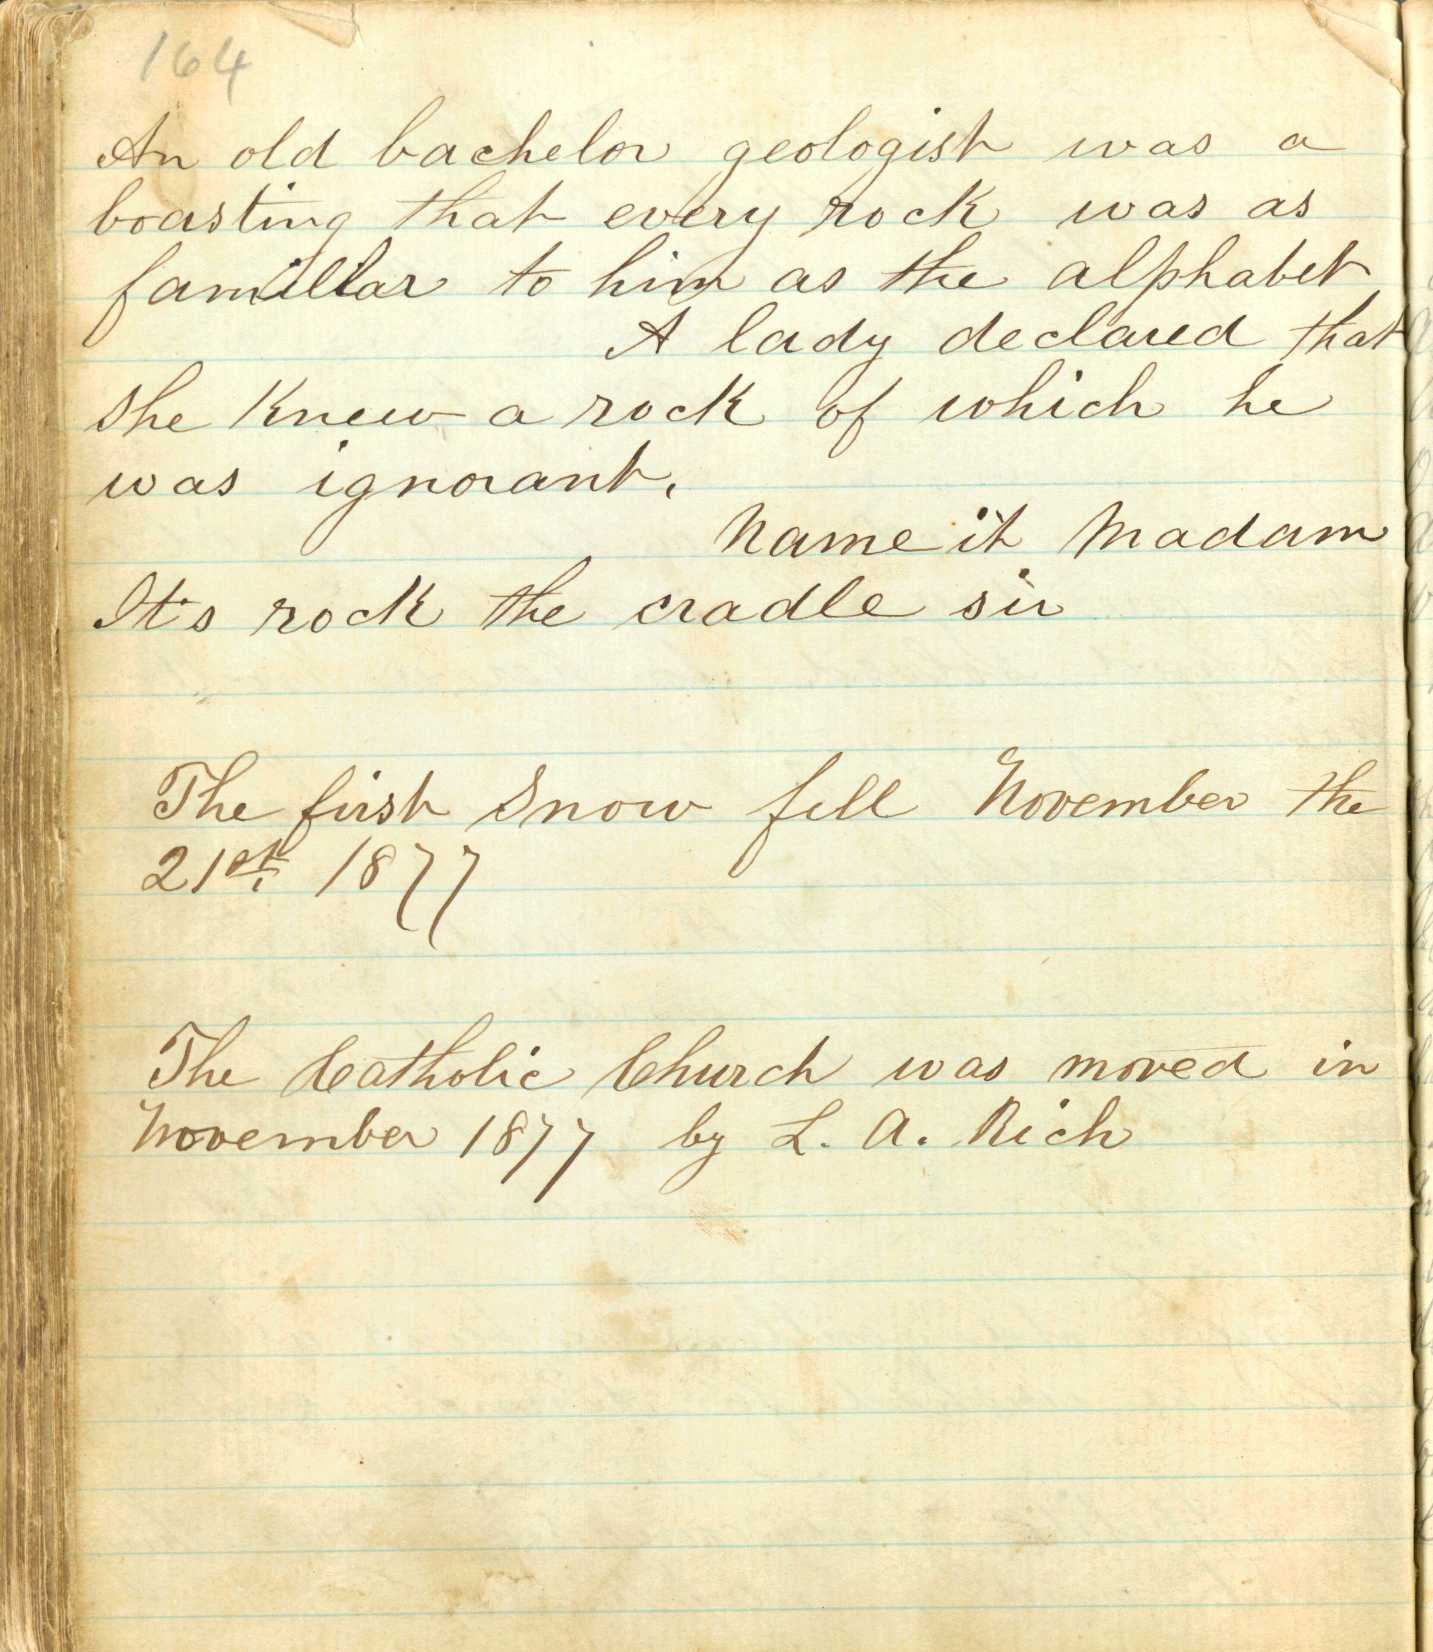 164
An old bachelor geologist was a
boasting that every rock was as
familiar to him as the alphabet
A lady declared that
she knew a rock of which he
was ignorant.
Name it Madam
It's rock the cradle sir
The first Snow fell November the
21st. 1877
The Catholic Church was moved in
November 1877 by L. A. Rich